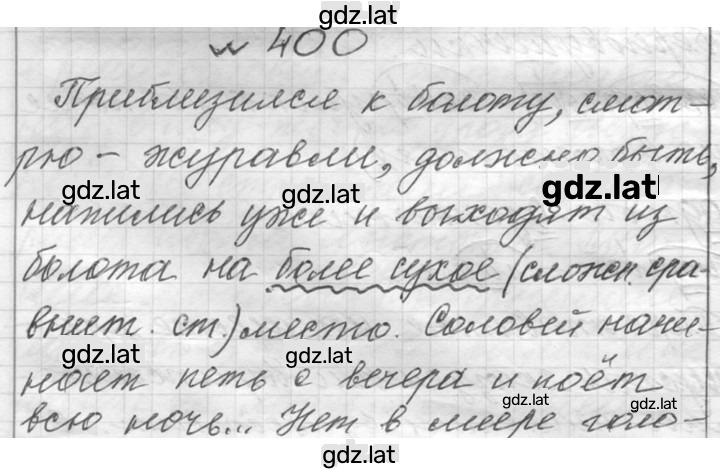 gdz.lat
№ 400
Приблизился к болоту, смот-
рю - журавли, должно быть,
gdz.lat gdz.lat gdz.lat
напились уже и выходят из
болота на более сухое (сложн. сра-
внит. ст.) место. Соловей начи-
gdz.lat gdz.lat
нает петь с вечера и поёт
gdz.lat gdz.lat
всю ночь... Нет в мире голо-
gdz.lat